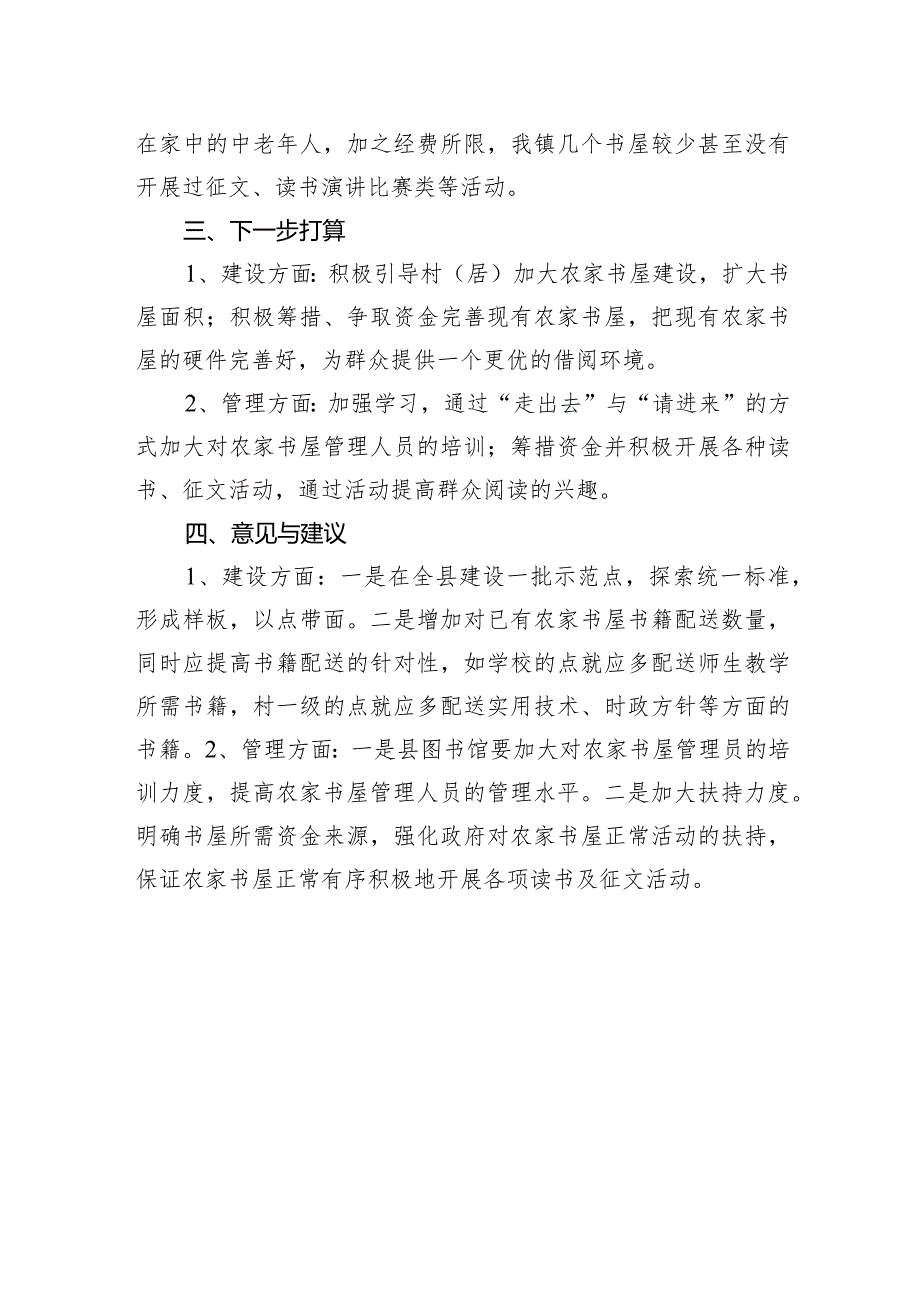 在家中的中老年人，加之经费所限，我镇几个书屋较少甚至没有
开展过征文、读书演讲比赛类等活动。
三、下一步打算
1、建设方面：积极引导村（居）加大农家书屋建设，扩大书
屋面积；积极筹措、争取资金完善现有农家书屋，把现有农家书
屋的硬件完善好，为群众提供一个更优的借阅环境。
2、管理方面：加强学习，通过“走出去”与“请进来”的方
式加大对农家书屋管理人员的培训；筹措资金并积极开展各种读
书、征文活动，通过活动提高群众阅读的兴趣。
四、意见与建议
1、建设方面：一是在全县建设一批示范点，探索统一标准，
形成样板，以点带面。二是增加对已有农家书屋书籍配送数量，
同时应提高书籍配送的针对性，如学校的点就应多配送师生教学
所需书籍，村一级的点就应多配送实用技术、时政方针等方面的
书籍。2、管理方面：一是县图书馆要加大对农家书屋管理员的培
训力度，提高农家书屋管理人员的管理水平。二是加大扶持力度。
明确书屋所需资金来源，强化政府对农家书屋正常活动的扶持，
保证农家书屋正常有序积极地开展各项读书及征文活动。